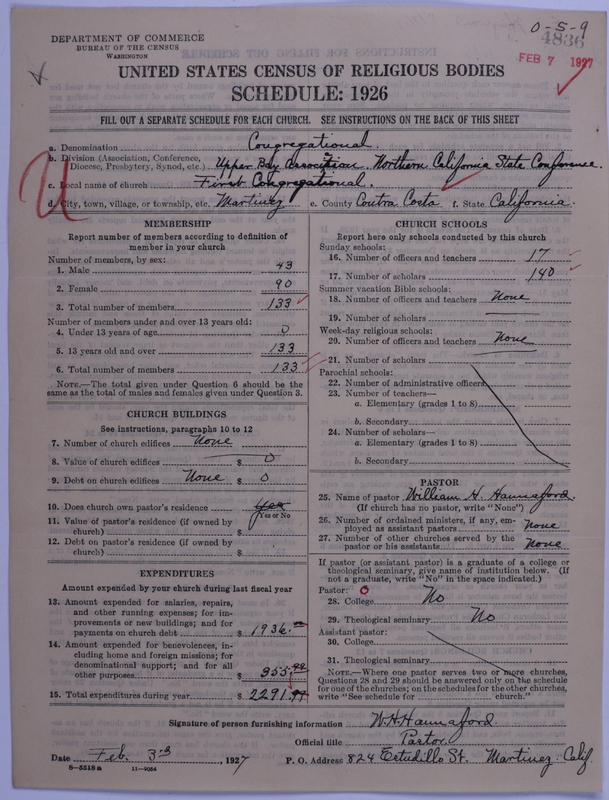 0-5-9
4836
DEPARTMENT OF COMMERCE
BUREAU OF THE CENSUS
WASHINGTON
FEB 7 1927
UNITED STATES CENSUS OF RELIGIOUS BODIES
SCHEDULE: 1926
FILL OUT A SEPARATE SCHEDULE FOR EACH CHURCH. SEE INSTRUCTIONS ON THE BACK OF THIS SHEET
a. Denomination Congregational.
b. Division (Association, Conference,
Diocese, Presbytery, Synod, etc.) Upper Bay Association. Northern California State Conference.
c. Local name of church First Congregational.
d. City, town, village, or township, etc. Martinez e. County Contra Costa f. State California.
U
MEMBERSHIP
Report number of members according to definition of
member in your church
Number of members, by sex:
1. Male 43
2. Female 90
3. Total number of members 133
Number of members under and over 13 years old:
4. Under 13 years of age 0
5. 13 years old and over 133
6. Total number of members 133
NOTE.—The total given under Question 6 should be
the same as the total of males and females given under Question 3.
CHURCH BUILDINGS
See instructions, paragraphs 10 to 12
7. Number of church edifices None
8. Value of church edifices $ 0
9. Debt on church edifices None $ 0
10. Does church own pastor's residence Yes
Yes or No
11. Value of pastor's residence (if owned by
church) $
12. Debt on pastor's residence (if owned by
church) $
EXPENDITURES
Amount expended by your church during last fiscal year
13. Amount expended for salaries, repairs,
and other running expenses; for im-
provements or new buildings; and for
payments on church debt $ 1936.
14. Amount expended for benevolences, in-
cluding home and foreign missions; for
denominational support; and for all
other purposes $ 355.
15. Total expenditures during year $ 2291.
CHURCH SCHOOLS
Report here only schools conducted by this church
Sunday schools:
16. Number of officers and teachers 17
17. Number of scholars 140
Summer vacation Bible schools:
18. Number of officers and teachers None
19. Number of scholars
Week-day religious schools:
20. Number of officers and teachers None
21. Number of scholars
Parochial schools:
22. Number of administrative officers
23. Number of teachers—
a. Elementary (grades 1 to 8)
b. Secondary
24. Number of scholars—
a. Elementary (grades 1 to 8)
b. Secondary
PASTOR
25. Name of pastor William H. Hannaford.
(If church has no pastor, write "None")
26. Number of ordained ministers, if any, em-
ployed as assistant pastors None
27. Number of other churches served by the
pastor or his assistants None
If pastor (or assistant pastor) is a graduate of a college or
theological seminary, give name of institution below. (If
not a graduate, write "No" in the space indicated.)
Pastor: 0
28. College No
29. Theological seminary No
Assistant pastor:
30. College
31. Theological seminary
NOTE.—Where one pastor serves two or more churches,
Questions 28 and 29 should be answered only on the schedule
for one of the churches; on the schedules for the other churches,
write "See schedule for church."
Signature of person furnishing information W.H.Hannaford
Official title Pastor
Date Feb. 3rd, 1927 P. O. Address 824 Estudillo St. Martinez Calif.
8—5518a 11—9054